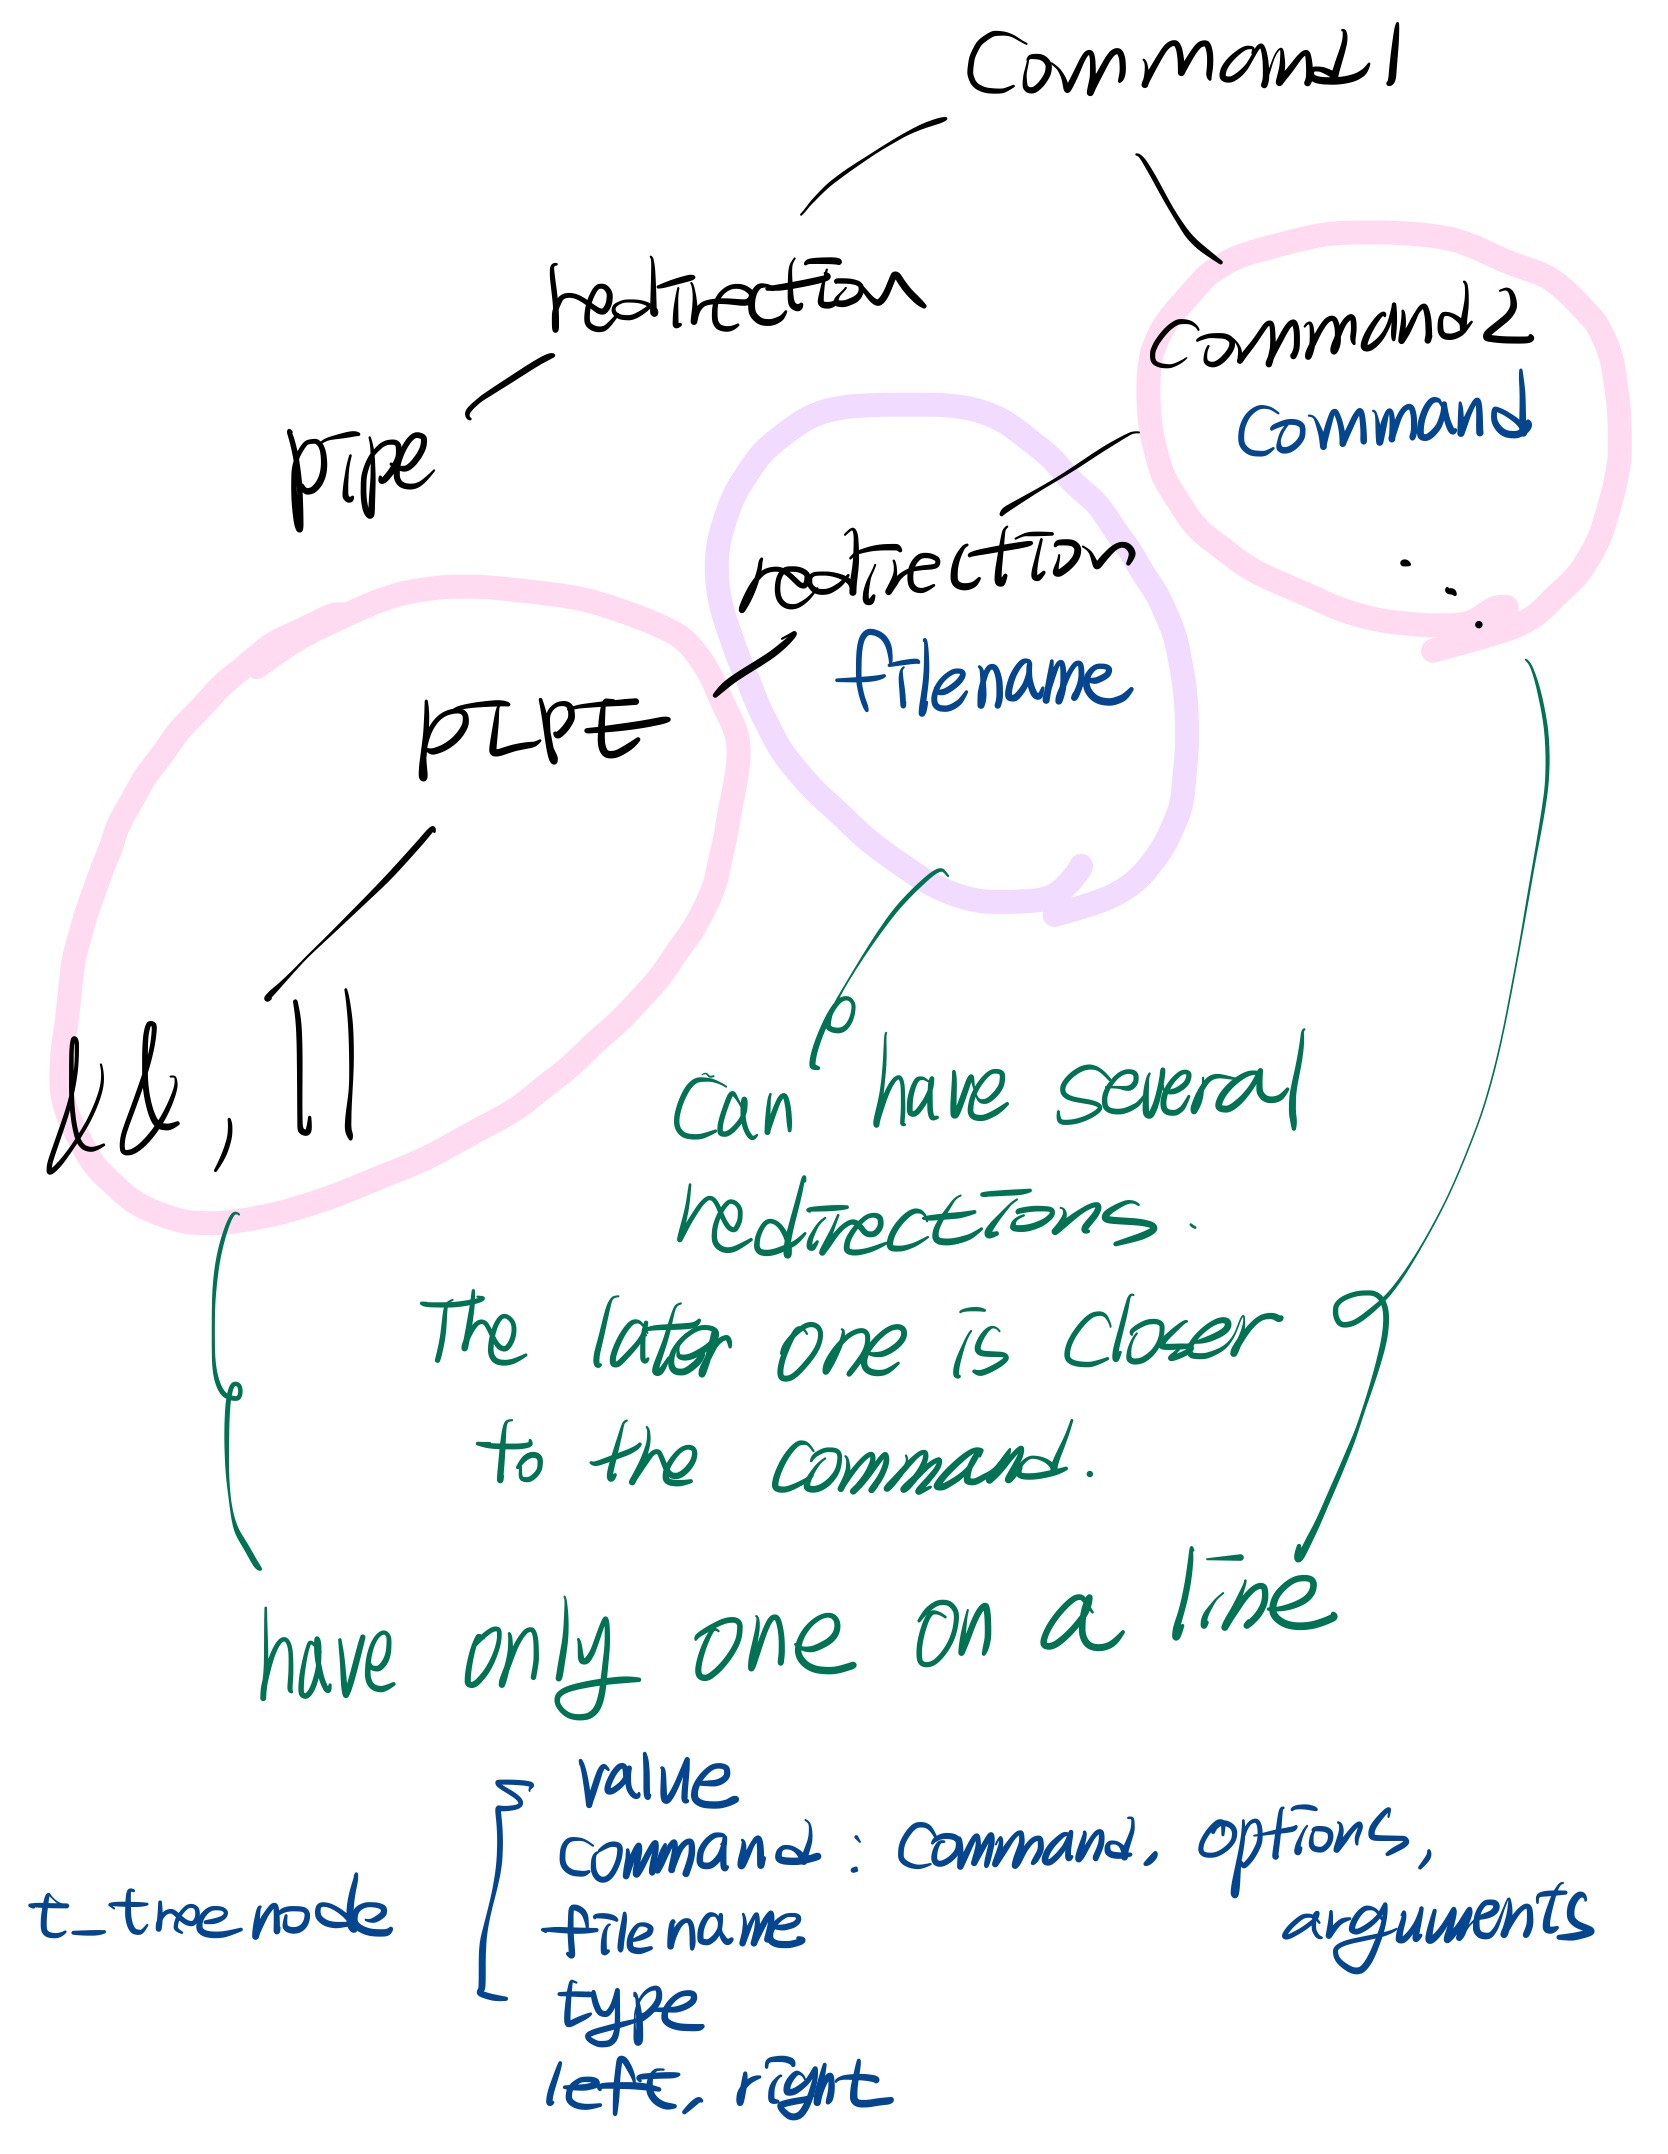 Command1
redirection
Command2
Command
pipe
redirection
filename
PIPE
&&, ||
Can have several
redirections.
The later one is closer
to the command.
have only one on a line
value
command : Command, options,
arguments
t_treenode
filename
type
left, right